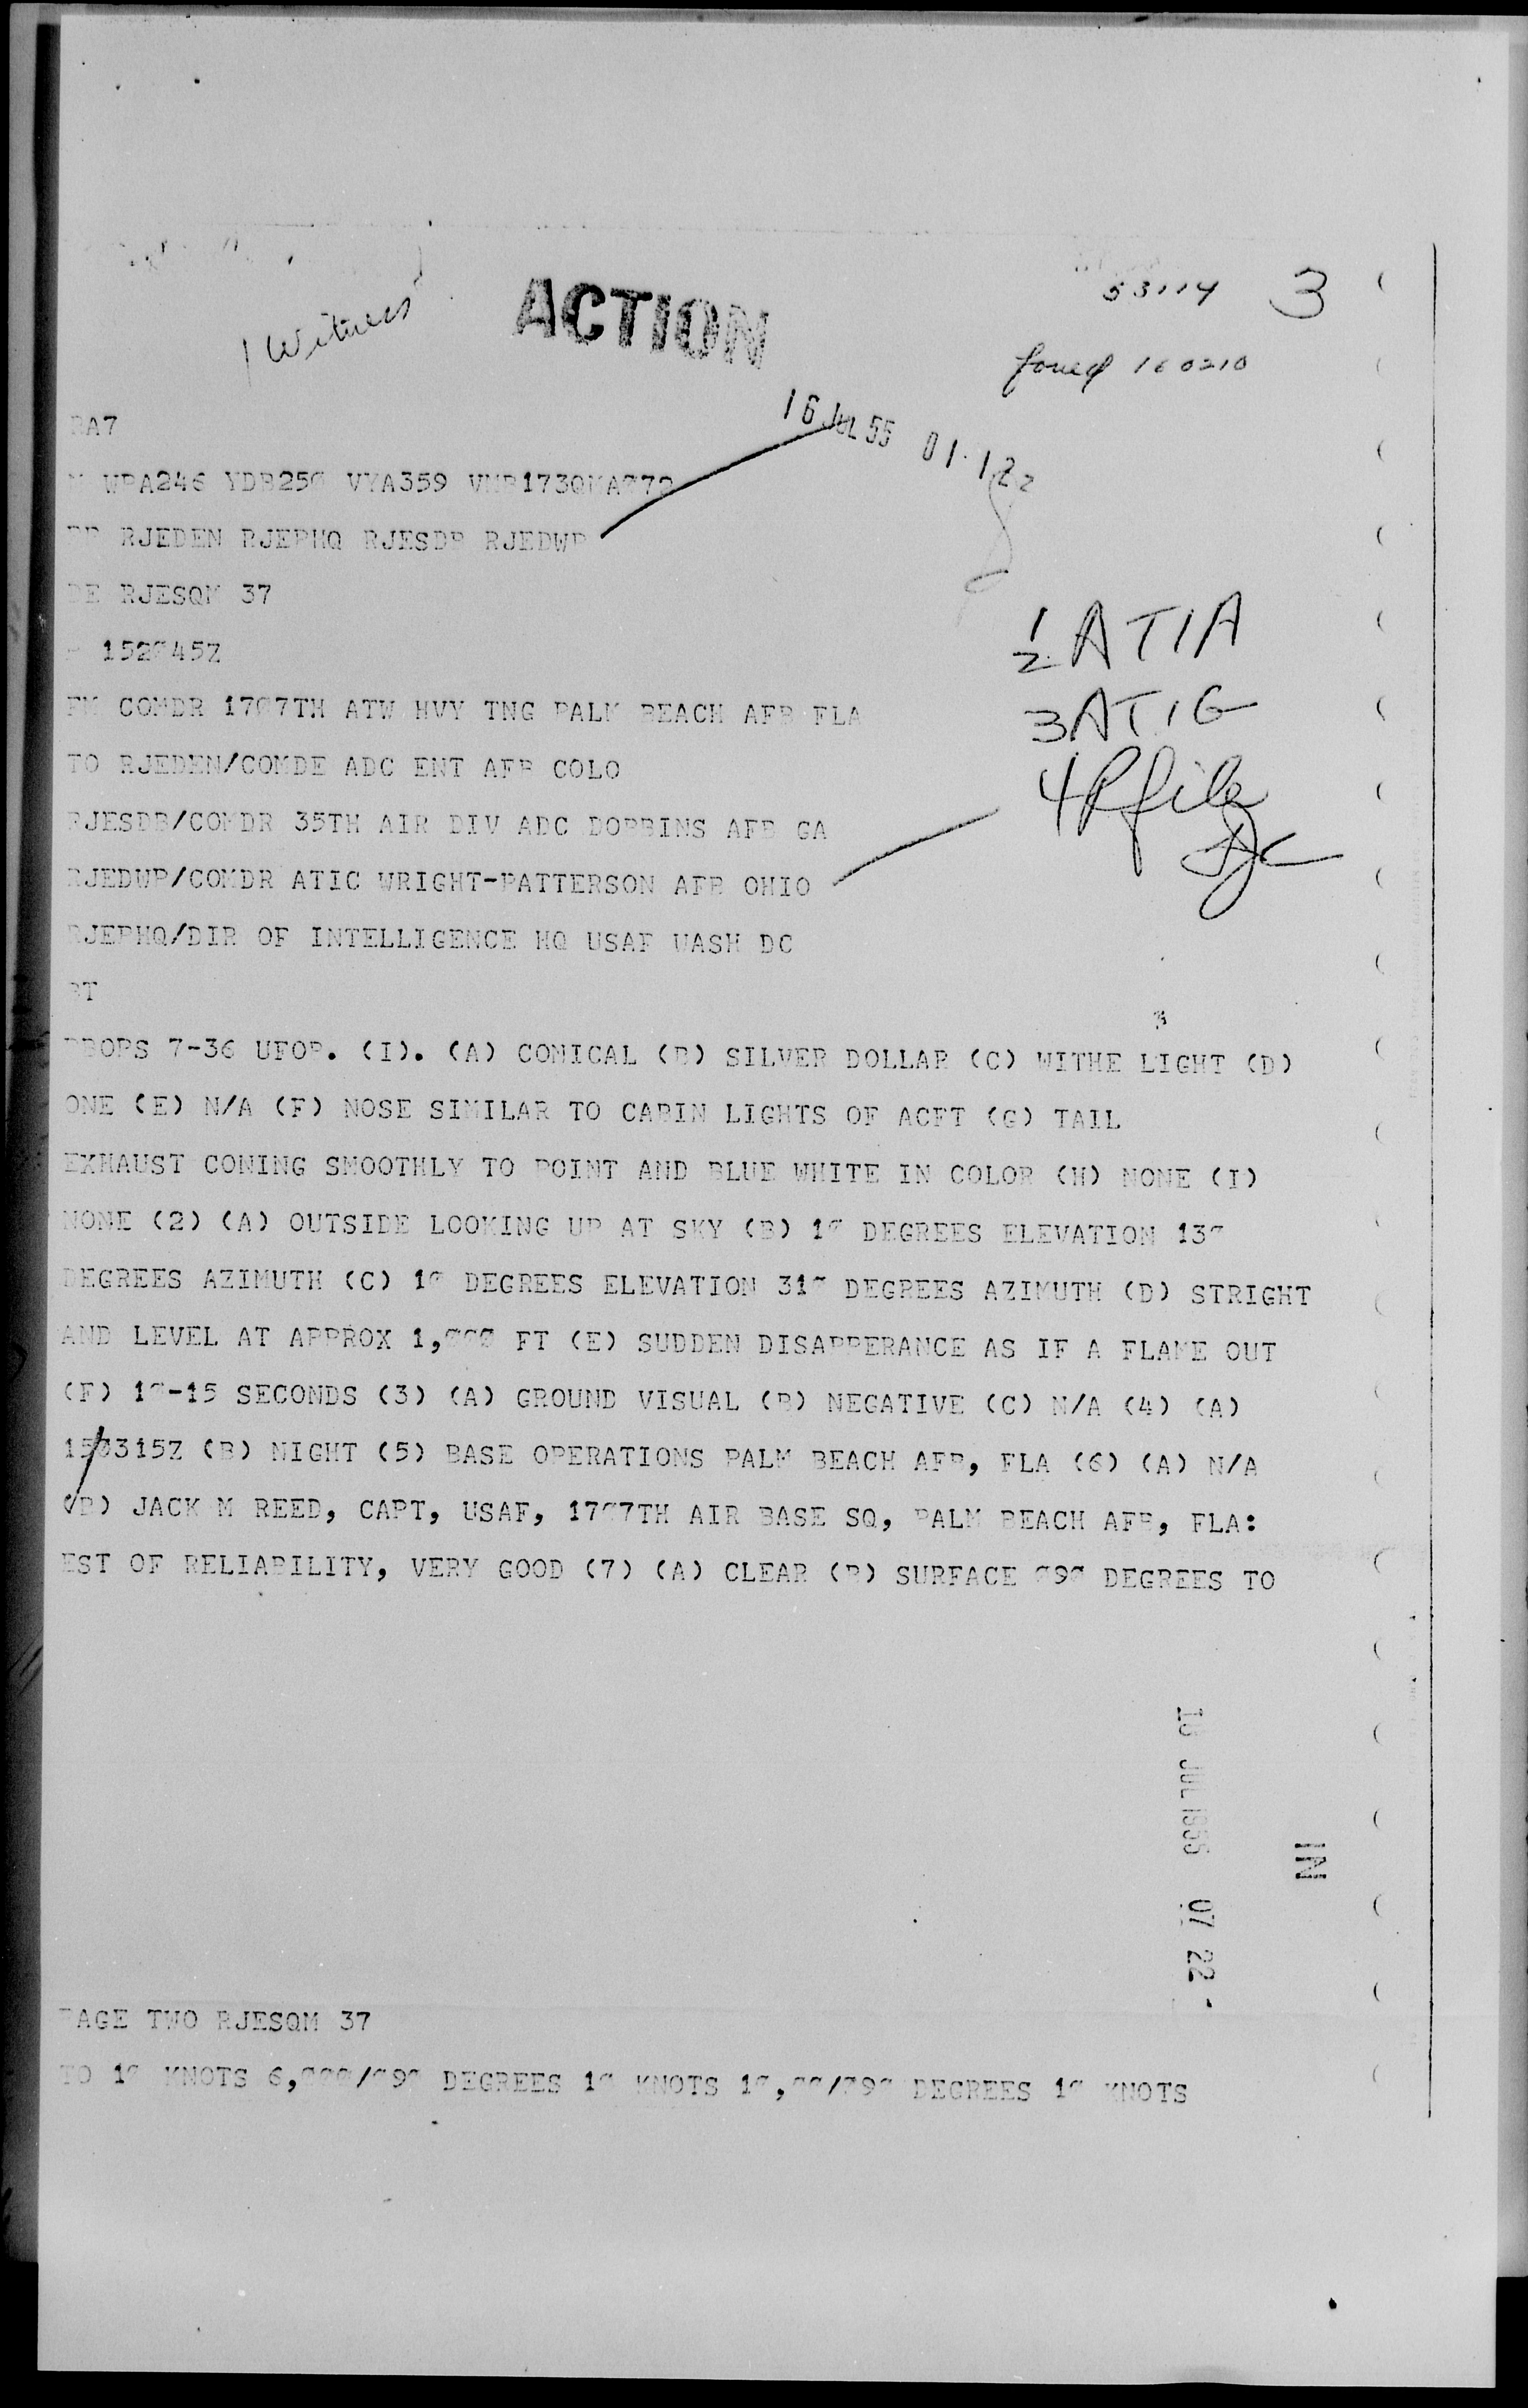 53114 3
1 Witness
ACTION
foned 160210
16 JUL 55 01 12z
BA7
WPA246 YDB250 VYA359 VMB173QMA072
PP RJEDEN RJEPHQ RJESDB RJEDWP
DE RJESQM 37
P 152045Z
FM COMDR 1707TH ATW HVY TNG PALM BEACH AFB FLA
TO RJEDEN/COMDE ADC ENT AFB COLO
RJESDB/COMDR 35TH AIR DIV ADC DOBBINS AFB GA
RJEDWP/COMDR ATIC WRIGHT-PATTERSON AFB OHIO
RJEPHQ/DIR OF INTELLIGENCE HQ USAF WASH DC
BT
1/2 ATIA
3 ATIG
4 P file
BOPS 7-36 UFOB. (I). (A) CONICAL (B) SILVER DOLLAR (C) WITHE LIGHT (D)
ONE (E) N/A (F) NOSE SIMILAR TO CABIN LIGHTS OF ACFT (G) TAIL
EXHAUST COMING SMOOTHLY TO POINT AND BLUE WHITE IN COLOR (H) NONE (I)
NONE (2) (A) OUTSIDE LOOKING UP AT SKY (B) 10 DEGREES ELEVATION 130
DEGREES AZIMUTH (C) 10 DEGREES ELEVATION 310 DEGREES AZIMUTH (D) STRIGHT
AND LEVEL AT APPROX 1,000 FT (E) SUDDEN DISAPPERANCE AS IF A FLAME OUT
(F) 10-15 SECONDS (3) (A) GROUND VISUAL (B) NEGATIVE (C) N/A (4) (A)
150315Z (B) NIGHT (5) BASE OPERATIONS PALM BEACH AFB, FLA (6) (A) N/A
(B) JACK M REED, CAPT, USAF, 1707TH AIR BASE SQ, PALM BEACH AFB, FLA:
EST OF RELIABILITY, VERY GOOD (7) (A) CLEAR (B) SURFACE 090 DEGREES TO
16 JUL 1955 07 22
IN
PAGE TWO RJESQM 37
TO 10 KNOTS 6,000/090 DEGREES 10 KNOTS 10,00/090 DEGREES 10 KNOTS